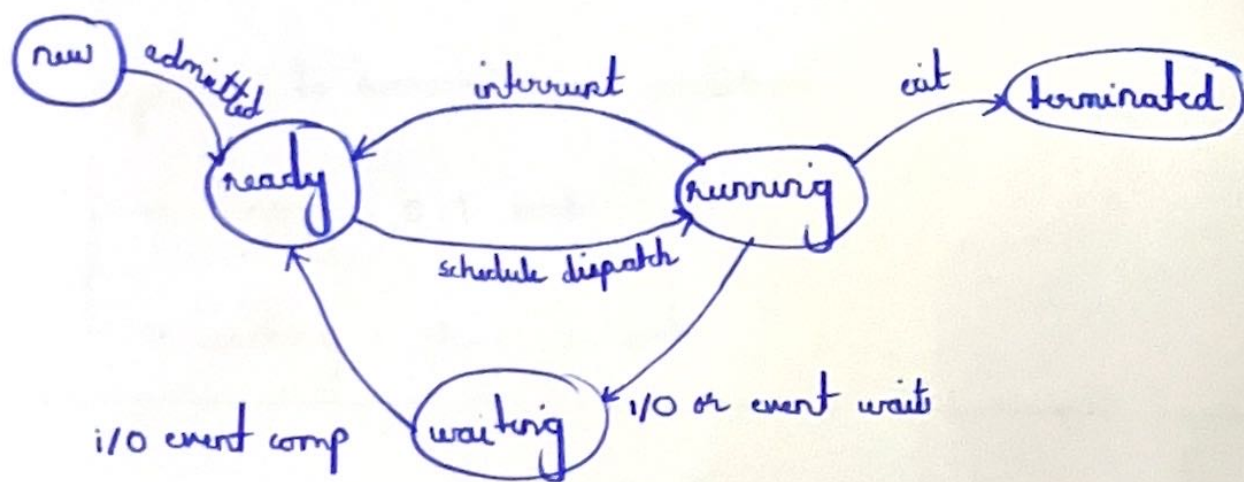 new
admitted
interrupt
exit
terminated
ready
running
schedule dispatch
waiting
i/O or event wait
i/O event comp